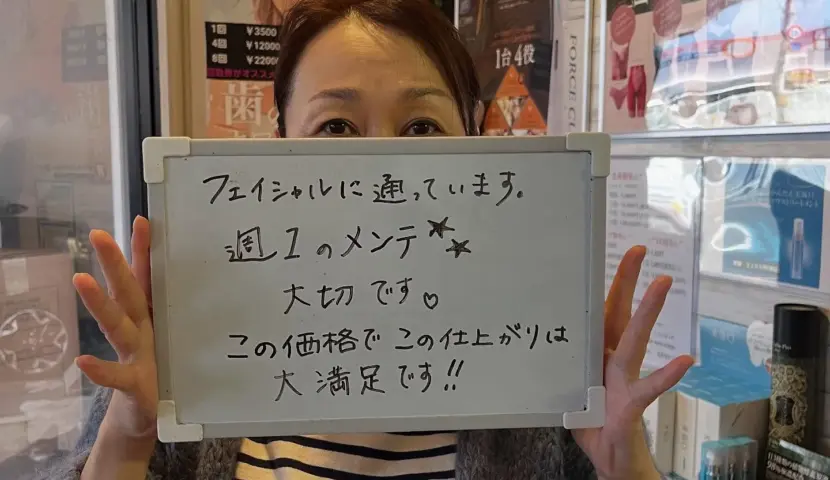 1回 ¥3500
4回 ¥12000
6回 ¥22000
歯の
1台4役
FORCE C
フェイシャルに通っています。
週1のメンテ★★
大切です♡
この価格でこの仕上がりは
大満足です!!